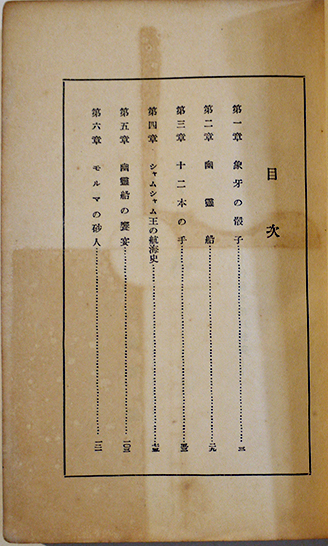 目次
第一章 象牙の骰子……………三
第二章 幽靈船……………二九
第三章 十二本の手……………
第四章 シャムシャム王の航海史……………
第五章 幽靈船の饗宴……………一〇三
第六章 モルマの砂人……………一二一